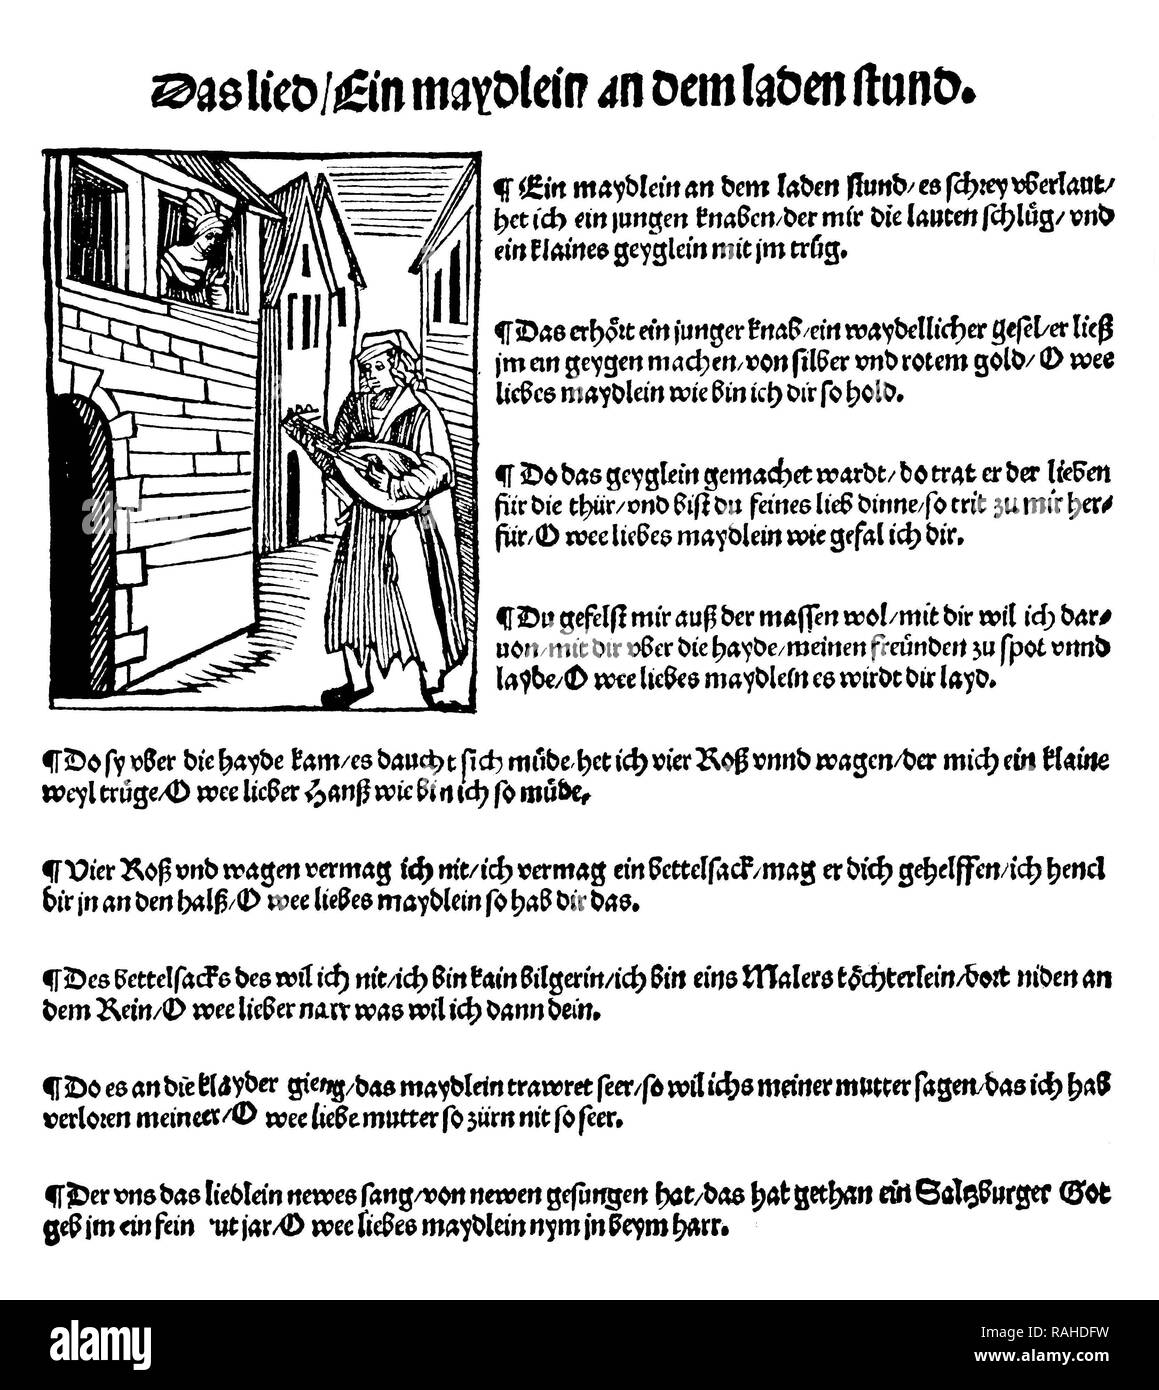 Das lied / Ein maydlein an dem laden stund.
¶ Ein maydlein an dem laden stund / es schrey vberlaut /
het ich ein jungen knaben / der mir die lauten schlüg / vnd
ein klaines geyglein mit jm trüg.
¶ Das erhört ein junger knab / ein waydellicher gesel / er ließ
jm ein geygen machen / von silber vnd rotem gold / O wee
liebes maydlein wie bin ich dir so hold.
¶ Do das geyglein gemachet wardt / do trat er der lieben
für die thür / vnd bist du feines lieb dinne / so trit zu mir her /
für / O wee liebes maydlein wie gefal ich dir.
¶ Du gefelst mir auß der massen wol / mit dir wil ich dar /
von / mit dir vber die hayde / meinen freünden zu spot vnnd
layde / O wee liebes maydlein es wirdt dir layd.
¶ Do sy vber die hayde kam / es daucht sich müde / het ich vier Roß vnnd wagen / der mich ein klaine
weyl trüge / O wee lieber Hanß wie bin ich so müde.
¶ Vier Roß vnd wagen vermag ich nit / ich vermag ein bettelsack / mag er dich gehelffen / ich henck
dir jn an den halß / O wee liebes maydlein so hab dir das.
¶ Des bettelsacks des wil ich nit / ich bin kain bilgerin / ich bin eins Malers töchterlein / dort niden an
dem Rein / O wee lieber narr was wil ich dann dein.
¶ Do es an die klayder gieng / das maydlein trawret seer / so wil ichs meiner mutter sagen / das ich hab
verloren mein eer / O wee liebe mutter so zürn nit so seer.
¶ Der vns das liedlein newes sang / von newen gesungen hat / das hat gethan ein Saltzburger Got
geb jm ein fein ut jar / O wee liebes maydlein nym jn beym harr.
alamy
Image ID: RAHDFW
www.alamy.com